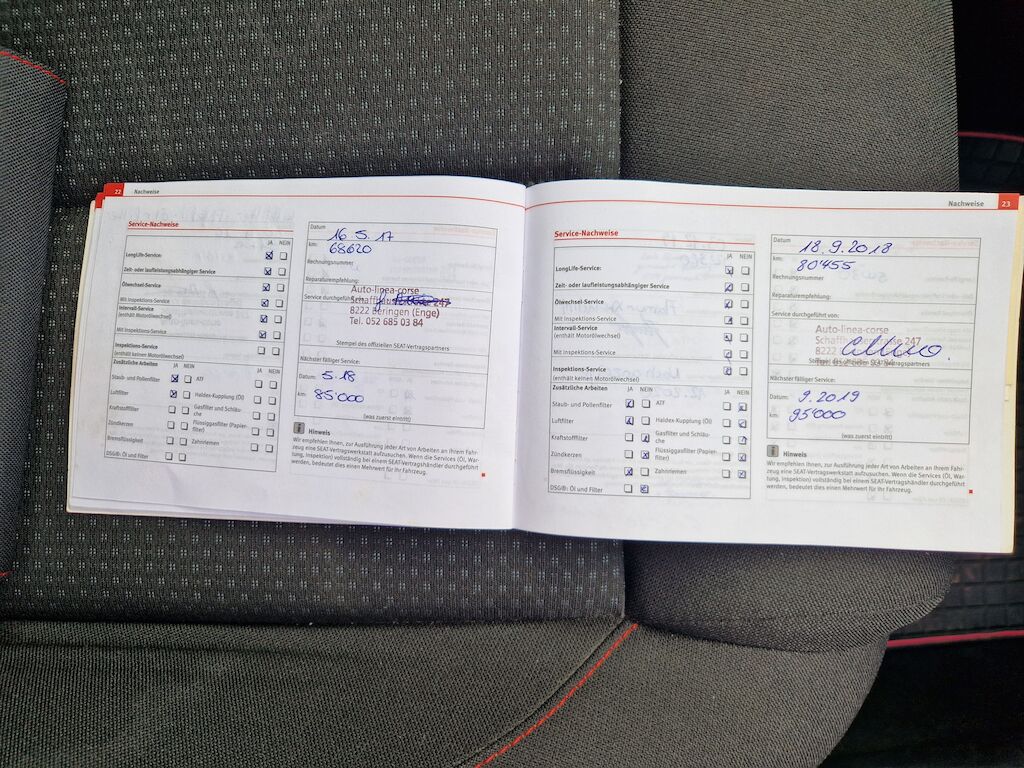 22 Nachweise
Service-Nachweise
JA NEIN
LongLife-Service:
Zeit- oder laufleistungsabhängiger Service
Ölwechsel-Service
Mit Inspektions-Service
Intervall-Service
(enthält Motorölwechsel)
Mit Inspektions-Service
Inspektions-Service
(enthält keinen Motorölwechsel)
Zusätzliche Arbeiten JA NEIN JA NEIN
Staub- und Pollenfilter ATF
Luftfilter Haldex-Kupplung (Öl)
Kraftstofffilter Gasfilter und Schläu-
che
Zündkerzen Flüssiggasfilter (Papier-
filter)
Bremsflüssigkeit Zahnriemen
DSG®: Öl und Filter
Datum 16.5.17
km: 68620
Rechnungsnummer
Reparaturempfehlung:
Service durchgeführt
Auto-linea-corse
Schaffhauserstrasse 247
8222 Beringen (Enge)
Tel. 052 685 03 84
Stempel des offiziellen SEAT-Vertragspartners
Nächster fälliger Service:
Datum: 5.18
km: 85'000
(was zuerst eintritt)
i Hinweis
Wir empfehlen Ihnen, zur Ausführung jeder Art von Arbeiten an Ihrem Fahr-
zeug eine SEAT-Vertragswerkstatt aufzusuchen. Wenn die Services (Öl, War-
tung, Inspektion) vollständig bei einem SEAT-Vertragshändler durchgeführt
werden, bedeutet dies einen Mehrwert für Ihr Fahrzeug.
Nachweise 23
Service-Nachweise
JA NEIN
LongLife-Service:
Zeit- oder laufleistungsabhängiger Service
Ölwechsel-Service
Mit Inspektions-Service
Intervall-Service
(enthält Motorölwechsel)
Mit Inspektions-Service
Inspektions-Service
(enthält keinen Motorölwechsel)
Zusätzliche Arbeiten JA NEIN JA NEIN
Staub- und Pollenfilter ATF
Luftfilter Haldex-Kupplung (Öl)
Kraftstofffilter Gasfilter und Schläu-
che
Zündkerzen Flüssiggasfilter (Papier-
filter)
Bremsflüssigkeit Zahnriemen
DSG®: Öl und Filter
Datum 18.9.2018
km: 80'455
Rechnungsnummer
Reparaturempfehlung:
Service durchgeführt von:
Auto-linea-corse
Schaffhauserstrasse 247
8222
Tel. 052 685 03 84
SEAT-Vertragspartners
Nächster fälliger Service:
Datum: 9.2019
km: 95'000
(was zuerst eintritt)
i Hinweis
Wir empfehlen Ihnen, zur Ausführung jeder Art von Arbeiten an Ihrem Fahr-
zeug eine SEAT-Vertragswerkstatt aufzusuchen. Wenn die Services (Öl, War-
tung, Inspektion) vollständig bei einem SEAT-Vertragshändler durchgeführt
werden, bedeutet dies einen Mehrwert für Ihr Fahrzeug.